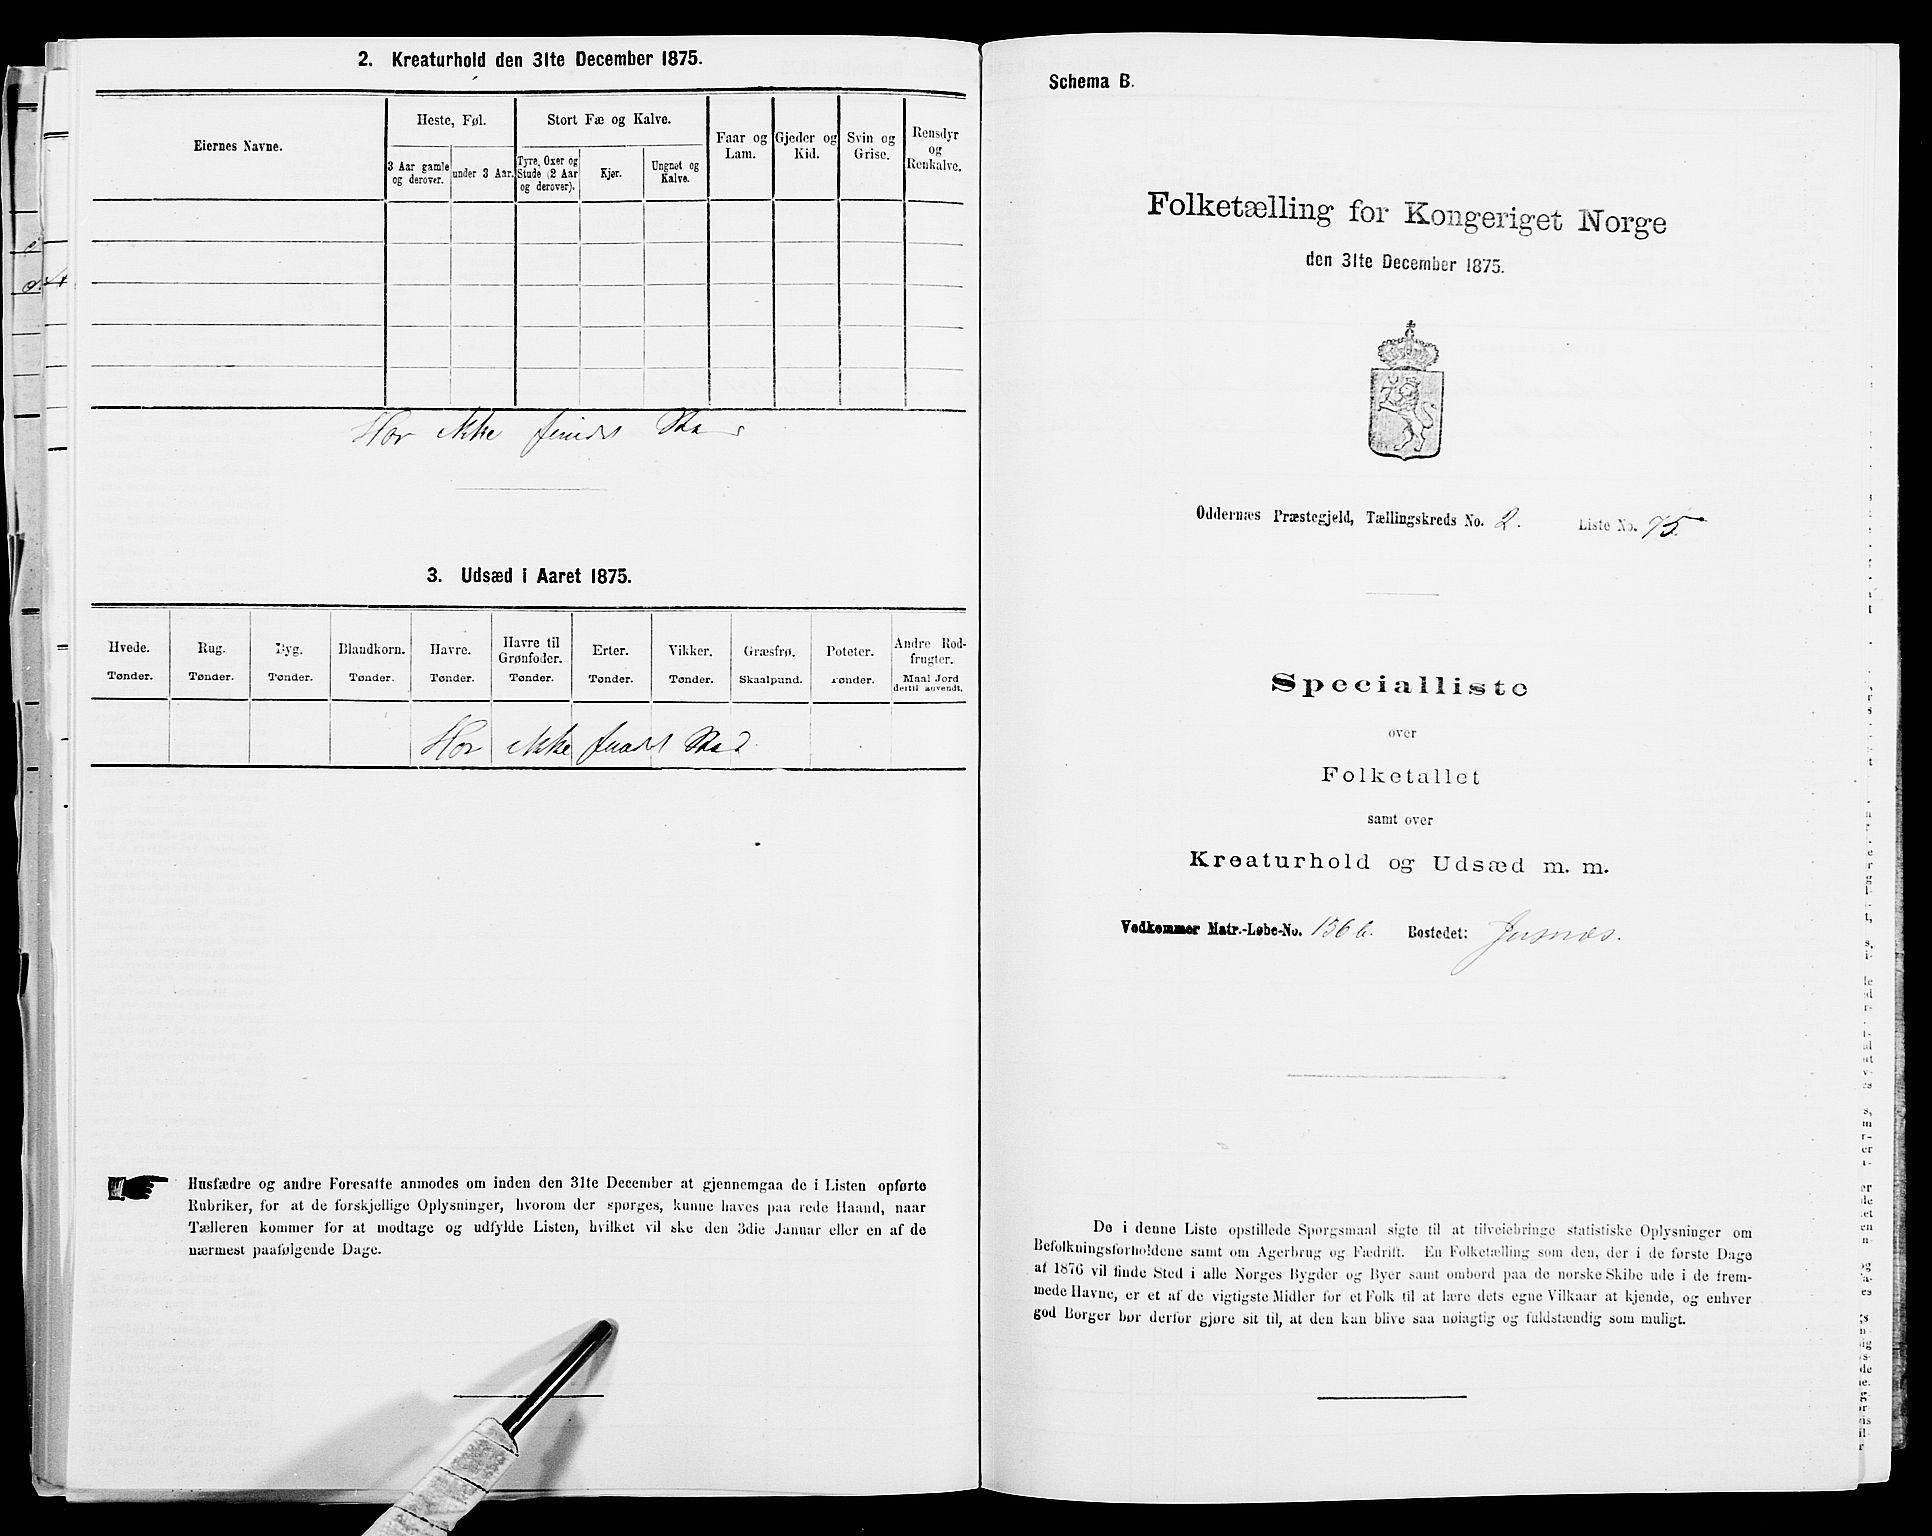 2. Kreaturhold den 31te December 1875.
Eiernes Navne.
Heste, Føl.
Stort Fæ og Kalve.
Faar og
Lam.
Gjeder og
Kid.
Svin og
Grise.
Rensdyr
og
Renkalve.
3 Aar gamle
og derover.
under 3 Aar.
Tyre, Oxer og
Stude (2 Aar
og derover).
Kjør.
Ungnøt og
Kalve.
Har ikke fundet Sted
3. Udsæd i Aaret 1875.
Hvede. Rug. Byg. Blandkorn. Havre. Havre til Grønfoder. Erter. Vikker. Græsfrø. Poteter. Andre Rod-frugter.
Tønder. Tønder. Tønder. Tønder. Tønder. Tønder. Tønder. Tønder. Skaalpund. Tønder. Maal Jord dertil anvendt.
Har ikke fundet Sted
Husfædre og andre Foresatte anmodes om inden den 31te December at gjennemgaa de i Listen opførte
Rubriker, for at de forskjellige Oplysninger, hvorom der spørges, kunne haves paa rede Haand, naar
Tælleren kommer for at modtage og udfylde Listen, hvilket vil ske den 3die Januar eller en af de
nærmest paafølgende Dage.
Schema B.
Folketælling for Kongeriget Norge
den 31te December 1875.
Oddernæs Præstegjeld, Tællingskreds No. 2. Liste No. 75
Specialliste
over
Folketallet
samt over
Kreaturhold og Udsæd m. m.
Vedkommer Matr.-Løbe-No. 136 b. Bostedet: Justnæs.
De i denne Liste opstillede Spørgsmaal sigte til at tilveiebringe statistiske Oplysninger om
Befolkningsforholdene samt om Agerbrug og Fædrift. En Folketælling som den, der i de første Dage
af 1876 vil finde Sted i alle Norges Bygder og Byer samt ombord paa de norske Skibe ude i de frem-
mede Havne, er et af de vigtigste Midler for et Folk til at lære dets egne Vilkaar at kjende, og enhver
god Borger bør derfor gjøre sit til, at den kan blive saa nøiagtig og fuldstændig som muligt.